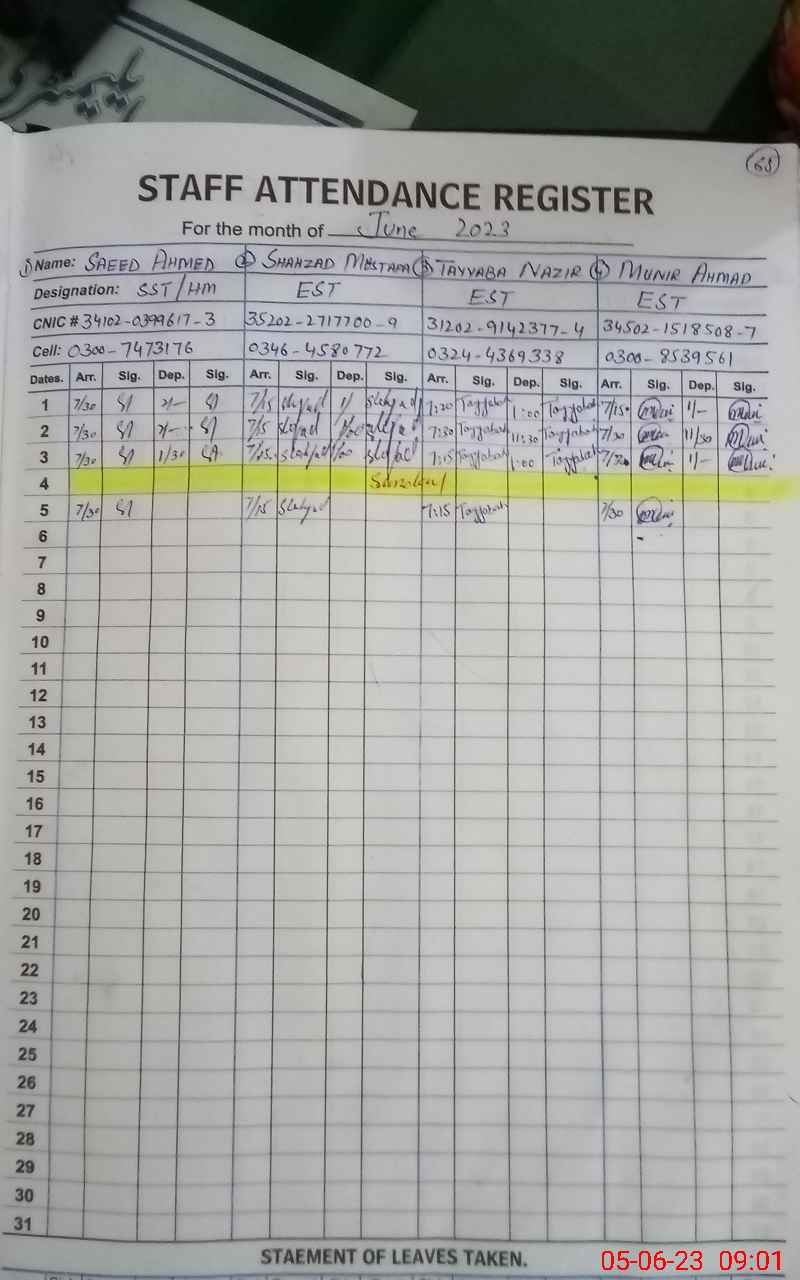 65
STAFF ATTENDANCE REGISTER
For the month of June 2023
① Name: SAEED AHMED ② SHAHZAD MUSTAFA ③ TAYYABA NAZIR ④ MUNIR AHMAD
Designation: SST/HM EST EST EST
CNIC # 34102-0399617-3 35202-2717700-9 31202-9142377-4 34502-1518508-7
Cell: 0300-7473176 0346-4580772 0324-4369338 0300-8539561
Dates. Arr. Sig. Dep. Sig. Arr. Sig. Dep. Sig. Arr. Sig. Dep. Sig. Arr. Sig. Dep. Sig.
1 7/30 7/15 1/ 7:20 Tayyabah 1:00 Tayyabah 7/15 1/-
2 7/30 7/15 7:30 Tayyabah 11:30 Tayyabah 7/30 11/30
3 7/30 1/30 7/15 7:15 Tayyabah 1:00 Tayyabah 7/30 1/-
4 Sunday
5 7/30 7/15 7:15 Tayyabah 7/30
6
7
8
9
10
11
12
13
14
15
16
17
18
19
20
21
22
23
24
25
26
27
28
29
30
31
STAEMENT OF LEAVES TAKEN.
05-06-23 09:01